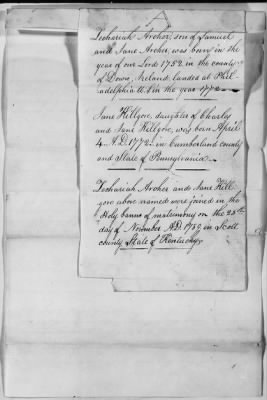 Zechariah Archer, son of Samuel
and Jane Archer, was born in the
year of our Lord 1752 in the county
of Down, Ireland landed at Phil-
adelphia in the year 1772
Jane Killgore, daughter of Charly
and Jane Killgore, was born April
4. A.D. 1772. in Cumberland county
and State of Pennsylvania
Zechariah Archer and Jane Kill
gore above named were joined in the
Holy banns of matrimony on the 25th
day of November A.D. in Scott
county State of Kentucky